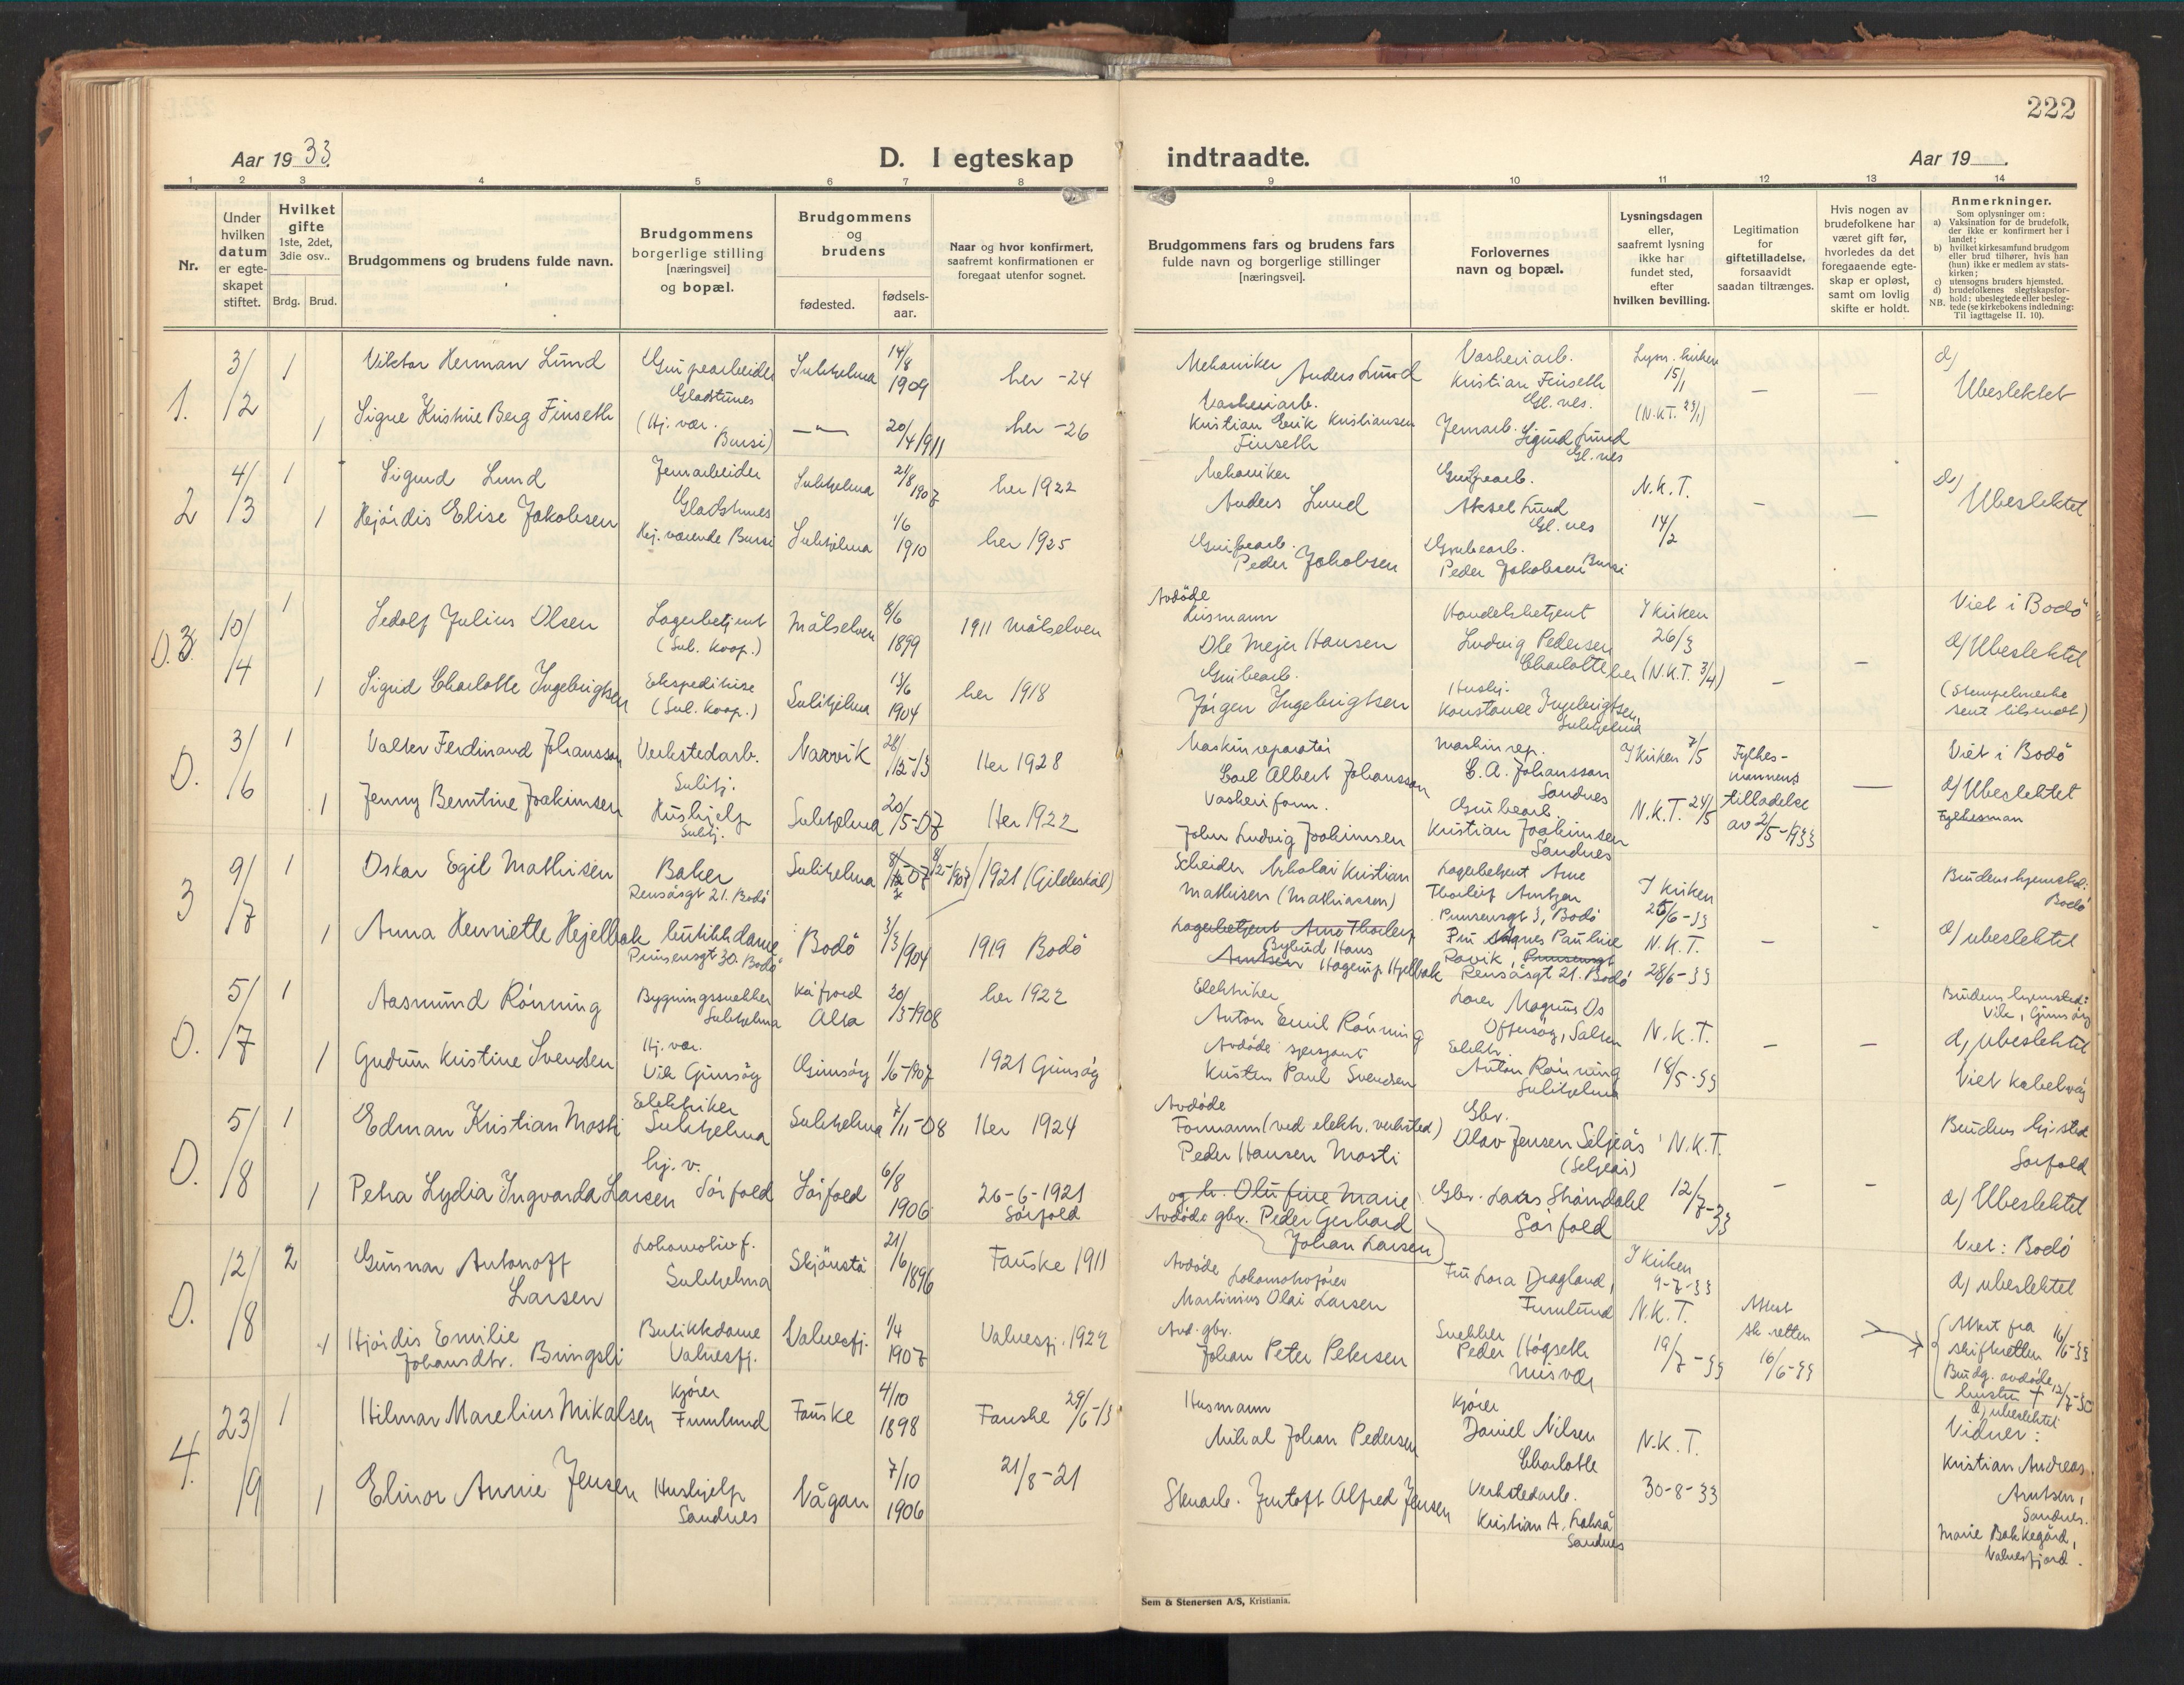 222
Aar 19 33.
D. I egteskap indtraadte.
Aar 19 .
1 2 3 4 5 6 7 8 9 10 11 12 13 14
Nr.
Under hvilken datum er egteskapet stiftet.
Hvilket gifte 1ste, 2det, 3die osv..
Brdg. Brud.
Brudgommens og brudens fulde navn.
Brudgommens borgerlige stilling [næringsvei] og bopæl.
Brudgommens og brudens
fødested.
fødsels-aar.
Naar og hvor konfirmert, saafremt konfirmationen er foregaat utenfor sognet.
Brudgommens fars og brudens fars fulde navn og borgerlige stillinger [næringsvei].
Forlovernes navn og bopæl.
Lysningsdagen eller, saafremt lysning ikke har fundet sted, efter hvilken bevilling.
Legitimation for giftetilladelse, forsaavidt saadan tiltrænges.
Hvis nogen av brudefolkene har været gift før, hvorledes da det foregaaende egteskap er opløst, samt om lovlig skifte er holdt.
Anmerkninger.
Som oplysninger om:
a) Vaksination for de brudefolk, der ikke er konfirmert her i landet;
b) hvilket kirkesamfund brudgom eller brud tilhører, hvis han (hun) ikke er medlem av statskirken;
c) utensogns bruders hjemsted.
d) brudefolkenes slegtskapsforhold: ubeslegtede eller beslegtede (se kirkebokens indledning:
NB. Til iagttagelse II. 10).
1. 3/2 1 Viktor Herman Lund
Grubearbeider Gladstunes
Sulitjelma 14/8 1909 her -24
Mekaniker Anders Lund
Vaskeriarb. Kristian Finseth Gl.nes.
Lysn. kirken 15/1 (N.K.T. 23/1)
— —
d) Ubeslektet
1 Signe Kristine Berg Finseth
(Hj. vær. Bursi)
—"— 20/4 1911 her -26
Vaskeriarb. Kristian Erik Kristiansen Finseth
Jernarb. Sigurd Lund Gl.nes
2 4/3 1 Sigurd Lund
Jernarbeider Gladstunes
Sulitjelma 21/8 1907 her 1922
Mekaniker Anders Lund
Grubearb. Aksel Lund Gl.nes
N.K.T. 14/2
— —
d) Ubeslektet
1 Hjördis Elise Jakobsen
Hj. værende Bursi
Sulitjelma 1/6 1910 her 1925
Grubearb. Peder Jakobsen
Grubearb. Peder Jakobsen Bursi
D. 3. 10/4 1 Sedolf Julius Olsen
Lagerbetjent (Sul. Koop.)
Målselven 8/6 1899 1911 Målselven
Avdöde Ole Mejer Hansen
Handelsbetjent Ludvig Pedersen Charlotte
I kirken 26/3 her (N.K.T. 3/4)
— —
Viet i Bodö
d/ Ubeslektet
(Stempelmerke sent tilsendt)
1 Sigrid Charlotte Ingebrigtsen
Ekspeditrise (Sul. Koop.)
Sulitjelma 13/6 1904 her 1918
Grubearb. Jörgen Ingebrigtsen
Hushj. Konstanse Ingebrigtsen, Sulitjelma
D. 3/6 1 Valter Ferdinand Johansson
Verkstedarb. Sulitj.
Narvik 28/12-13 Her 1928
Maskinreparatör Carl Albert Johansson
Maskinrep. C. A. Johansson Sandnes
I kirken 7/5 N.K.T. 24/5
Fylkesmannens tilladelse av 2/5-1933
—
Viet i Bodö
d/ Ubeslektet
Fylkesman
1 Jenny Berntine Joakimsen
Hushjelp Sulitj.
Sulitjelma 20/5-07 Her 1922
Vaskeriform. John Ludvig Joakimsen
Grubearb. Kristian Joakimsen Sandnes
3 9/7 1 Oskar Egil Mathisen
Baker Rensåsgt 21. Bodö
Sulitjelma 8/12-07 1921 (Gildeskål)
Skeider Nikolai Kristian Mathisen (Mathiassen)
Lagerbetjent Arne Thorleif Arntzen Prinsensgt 3, Bodö
I kirken 25/6-33 N.K.T. 28/6-33
— -
Brudens hjemsted: Bodö
d/ ubeslektet
1 Anna Henriette Hejelbak
butikkdame Prinsensgt 30. Bodö
Bodö 3/3 1904 1919 Bodö
Lagerbetjent Arne Thorleif Arntsen
Bybud Hans Hagerup Hjelbak
Fru Agnes Pauline Ravik Prinsensgt Rensåsgt 21. Bodö
D. 5/7 1 Aasmund Rönning
Bygningssnekker Sulitjelma
Kåfjord Alta 20/3-1908 her 1922
Elektriker Anton Emil Rönning
Lærer Magnus Os Offersöy, Salten
N.K.T. 18/5-33
— —
Brudens hjemsted: Vik, Gimsöy
d, ubeslektet
Viet Kabelvåg
1 Gudrun Kristine Svendsen
Hj. vær. Vik Gimsöy
Gimsöy 1/6-1907 1921 Gimsöy
Avdöde sersjant Kristen Paul Svendsen
Elektr. Anton Rönning Sulitjelma
D. 5/8 1 Edman Kristian Mosti
Elektriker Sulitjelma
Sulitjelma 7/11-08 Her 1924
Avdöde Formann (ved elektr. verksted) Peder Hansen Mosti
Gbr. Olav Jensen Seljeås (Seljeås)
N.K.T. 12/7-33
— —
Brudens hj.sted Sörfold
d) Ubeslektet
Viet: Bodö
1 Petra Lydia Ingvarda Larsen
hj. v. Sörfold
Sörfold 6/8 1906 26-6-1921 Sörfold
og h. Olufine Marie
Avdöde gbr. Peder Gerhard Johan Larsen
Gbr. Lars Strömdahl Sörfold
D. 12/8 2 Gunnar Antonoff Larsen
Lokomotivf. Sulitjelma
Skjönstå 21/6 1896 Fauske 1911
Avdöde Lokomotivförer Martinius Olai Larsen
Fru Lora Dragland, Furulund
I kirken 9-7-33 N.K.T. 19/7-33
Attest sk.retten 16/6-33
d) ubeslektet
Attest fra skifteretten 16/6-33
Brudg. avdöde hustru + 12/7-30
d, ubeslektet
1 Hjördis Emilie Johansdtr. Bringsli
Butikkdame Valnesfj.
Valnesfj. 1/4 1907 Valnesfj. 1922
Avd. gbr. Johan Peter Petersen
Snekker Peder Högseth Misvær
4. 23/9 1 Hilmar Marelius Mikalsen
Kjörer Furulund
Fauske 4/10 1898 Fauske 29/6-13
Husmann Mikal Johan Pedersen
Kjörer Daniel Nilsen Charlotte
N.K.T. 30-8-33
Vidner:
Kristian Andreas Arntsen, Sandnes.
Marie Bakkegård, Valnesfjord.
1 Elinor Annie Jensen
Hushjelp Sandnes
Vågan 7/10 1906 21/8-21
Stenarb. Jentoft Alfred Jensen
Verkstedarb. Kristian A. Lakså Sandnes
Sem & Stenersen A/S, Kristiania.